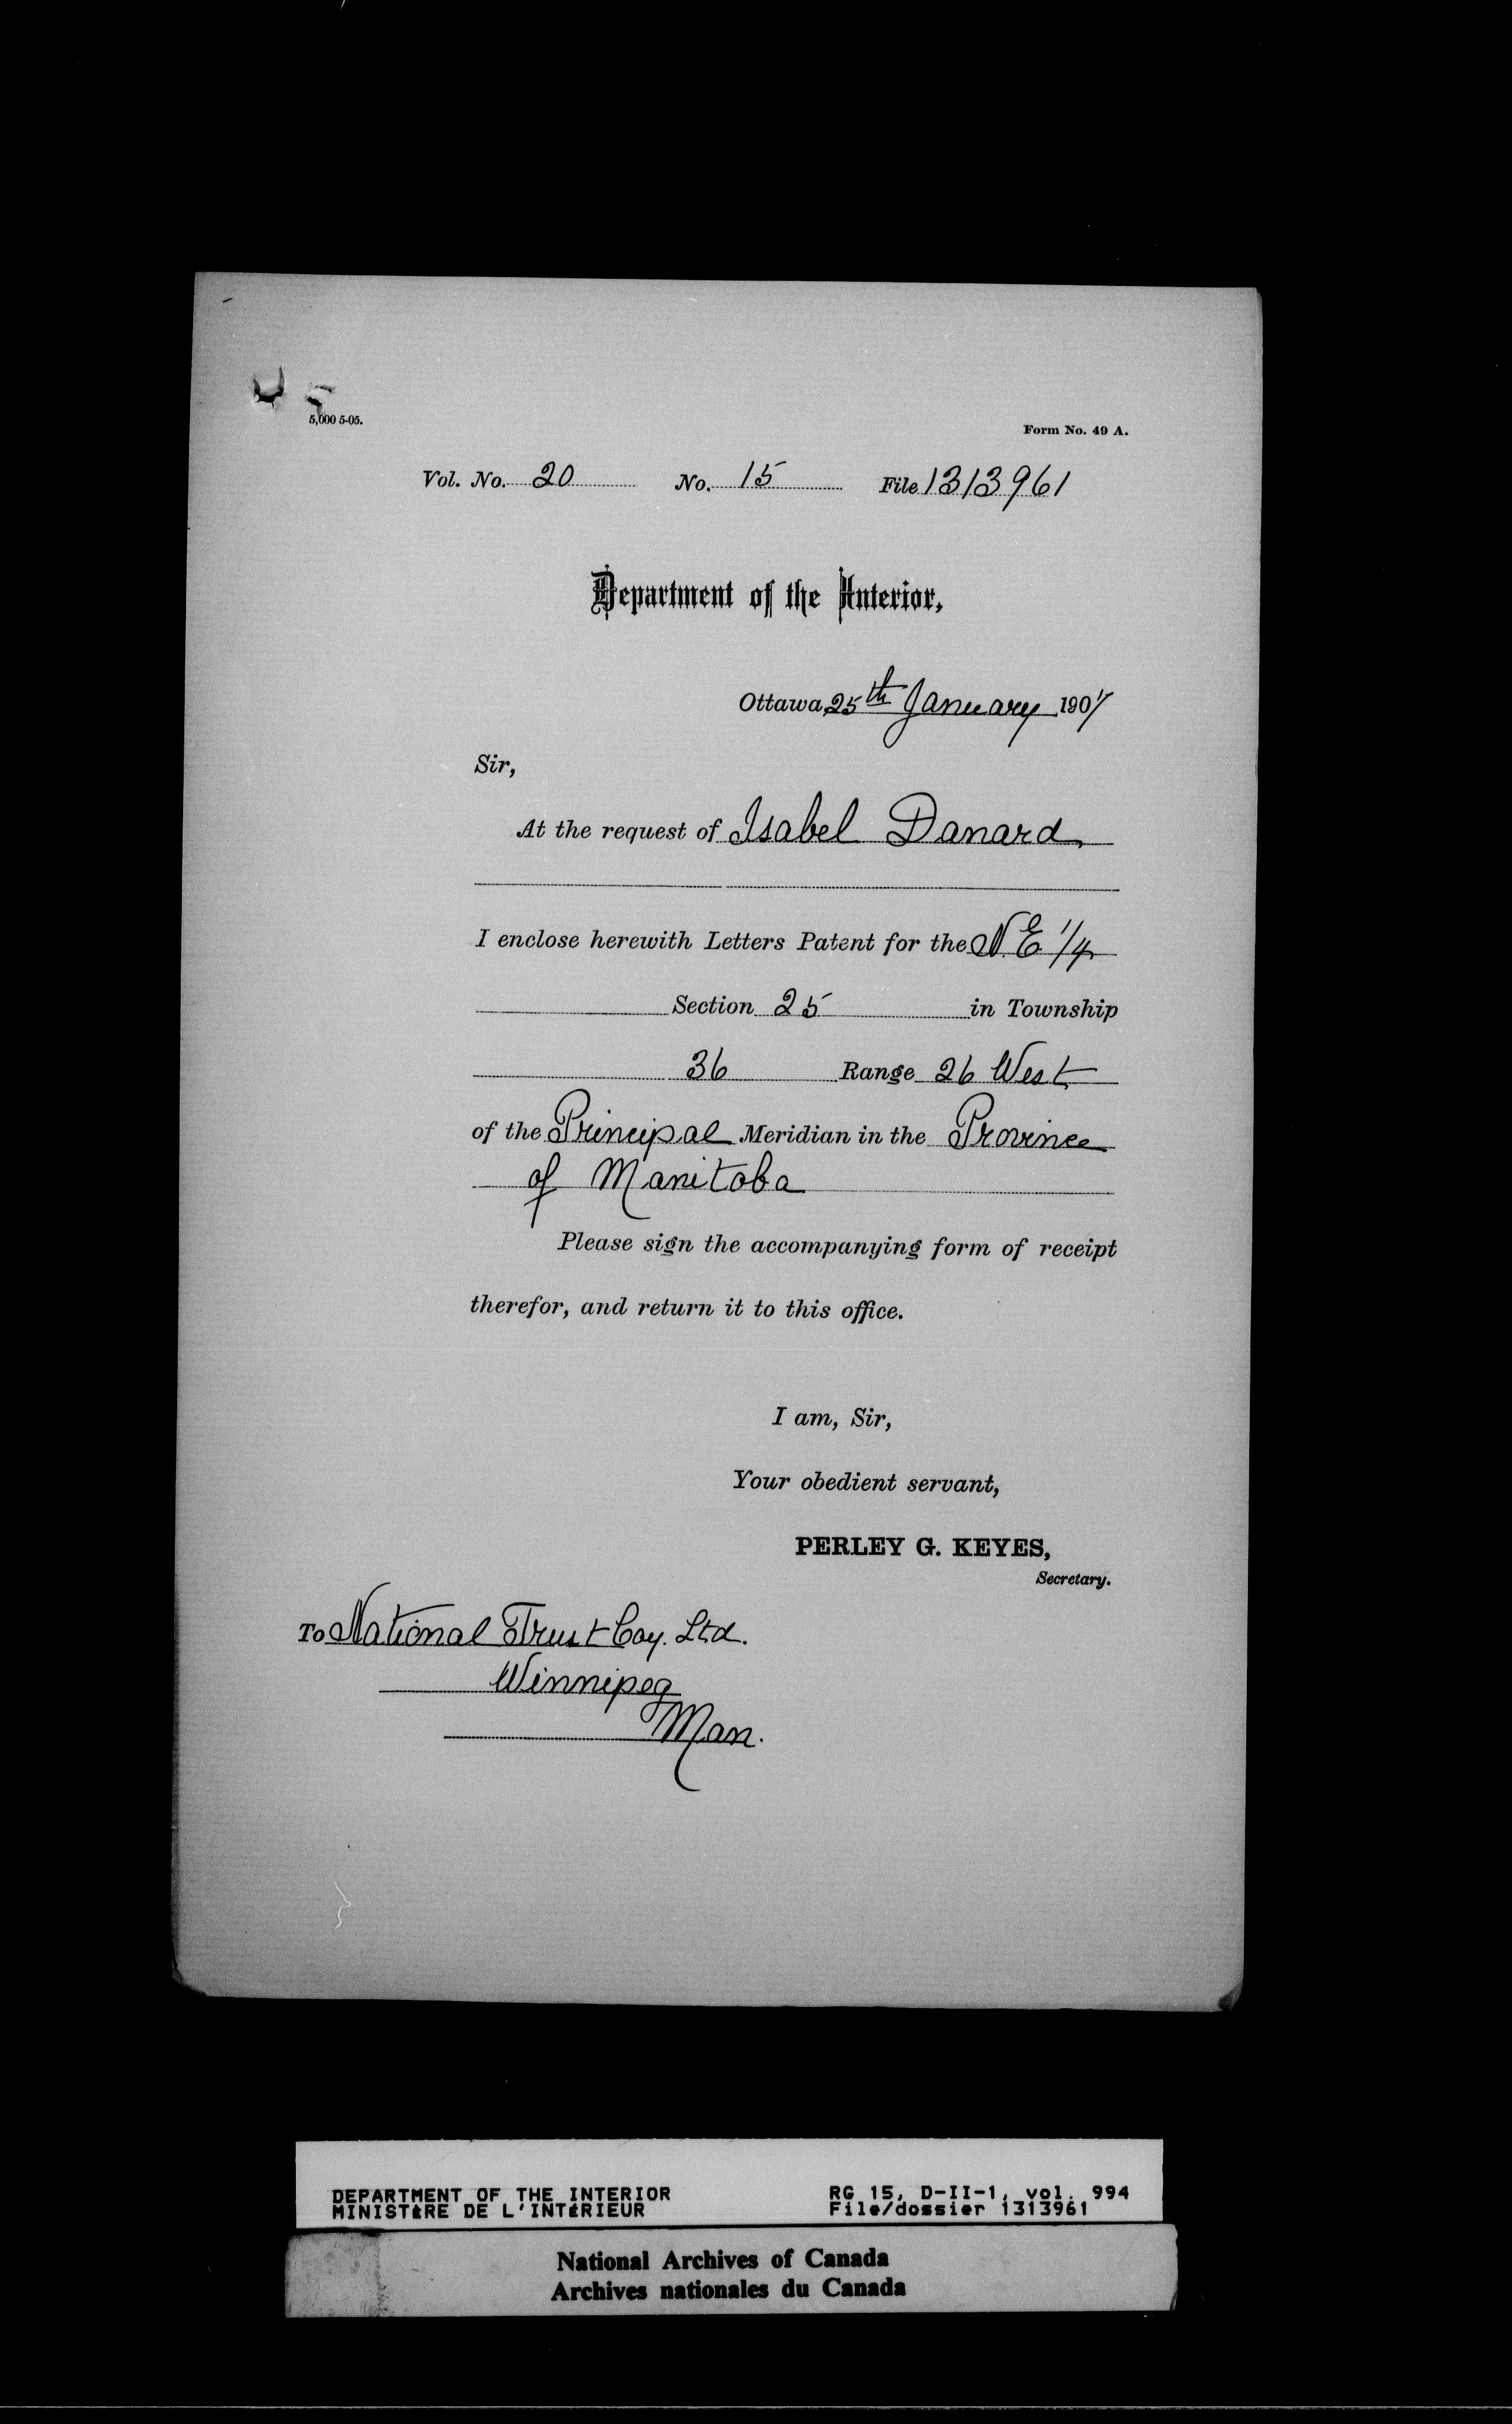 5,000 5-05.
Form No. 49 A.
Vol. No. 20 No. 15 File 1313961
Department of the Interior,
Ottawa, 25th January 1907
Sir,
At the request of Isabel Danard,
I enclose herewith Letters Patent for the N.E 1/4
Section 25 in Township
36 Range 26 West
of the Principal Meridian in the Province
of Manitoba
Please sign the accompanying form of receipt
therefor, and return it to this office.
I am, Sir,
Your obedient servant,
PERLEY G. KEYES,
Secretary.
To National Trust Coy. Ltd.
Winnipeg
Man.
DEPARTMENT OF THE INTERIOR RG 15, D-II-1, vol. 994
MINISTÈRE DE L'INTÉRIEUR File/dossier 1313961
National Archives of Canada
Archives nationales du Canada